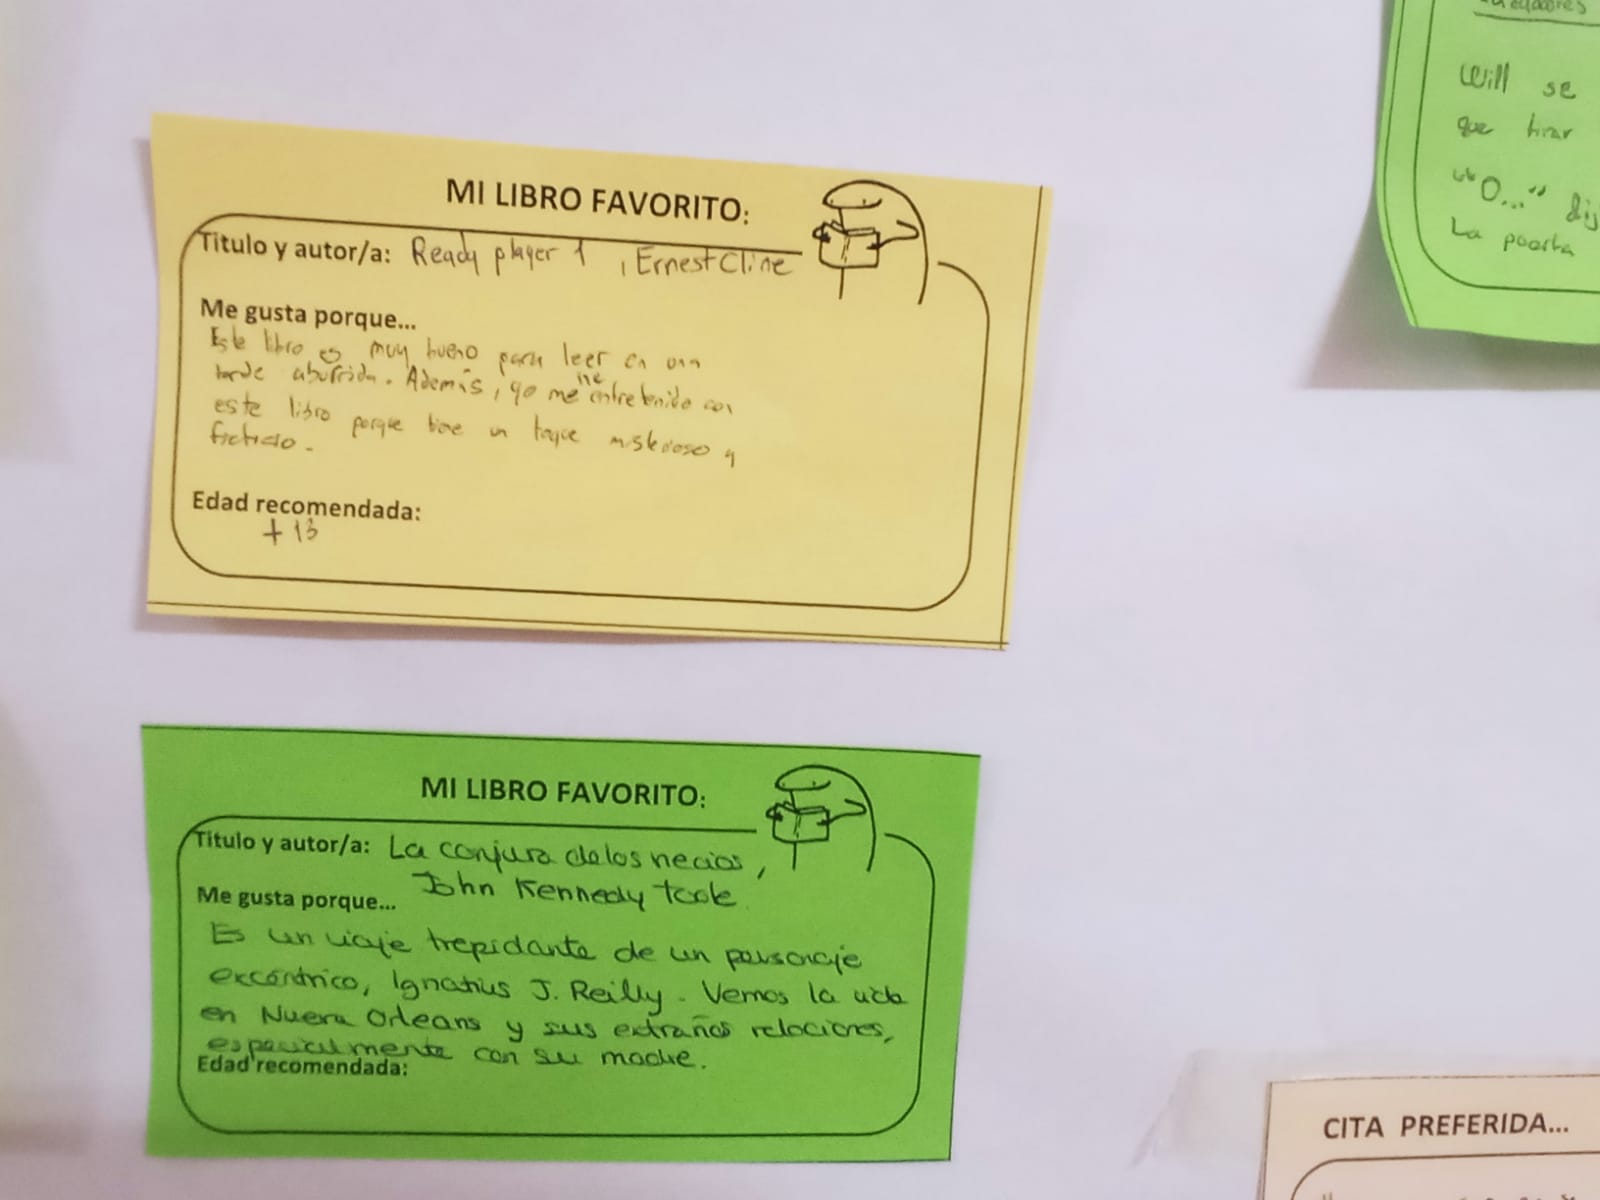 MI LIBRO FAVORITO:
Titulo y autor/a: Ready player 1 , Ernest Cline
Me gusta porque...
Este libro es muy bueno para leer en una
tarde aburrida. Además, yo me he entretenido con
este libro porque tiene un toque misterioso y
ficticio.
Edad recomendada:
+ 13
MI LIBRO FAVORITO:
Titulo y autor/a: La conjura de los necios,
John Kennedy Toole
Me gusta porque...
Es un viaje trepidante de un personaje
excéntrico, Ignatius J. Reilly. Vemos la vida
en Nueva Orleans y sus extrañas relaciones,
especialmente con su madre.
Edad recomendada:
Will se
que tirar
"O..."
La puerta
CITA PREFERIDA...